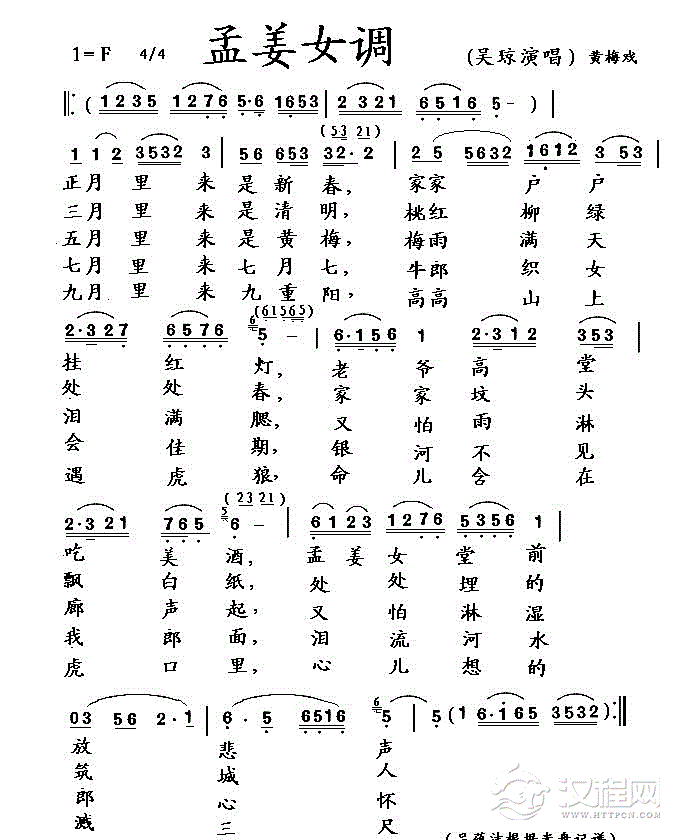 1=F 4/4 孟姜女调 (吴琼演唱) 黄梅戏
( 1235 1276 5·6 1653 | 2 321 6516 5 - )
(53 21)
1 1 2 3532 3 | 56 653 32·2 | 2 5 5632 1612 3 53 |
正月里来是新春,家家户户
三月里来是清明,桃红柳绿
五月里来是黄梅,梅雨满天
七月里来七月七,牛郎织女
九月里来九重阳,高高山上
(61565)
2·327 6576 5 - | 6·156 1 2·312 353 |
挂红灯,老爷高堂
处处春,家家坟头
泪满腮,又怕雨淋
会佳期,银河不见
遇虎狼,命儿含在
(2321)
2·321 765 6 - | 61 23 1276 5356 1 |
吃美酒,孟姜女堂前
飘白纸,处处埋的
廊声起,又怕淋湿
我郎面,泪流河水
虎口里,心儿想的
03 56 2·1 | 6·5 6516 5 | 5 (1 6·165 3532) :||
放悲声
筑城人
郎心怀
溅三尺
汉程网
HTTPCN.COM